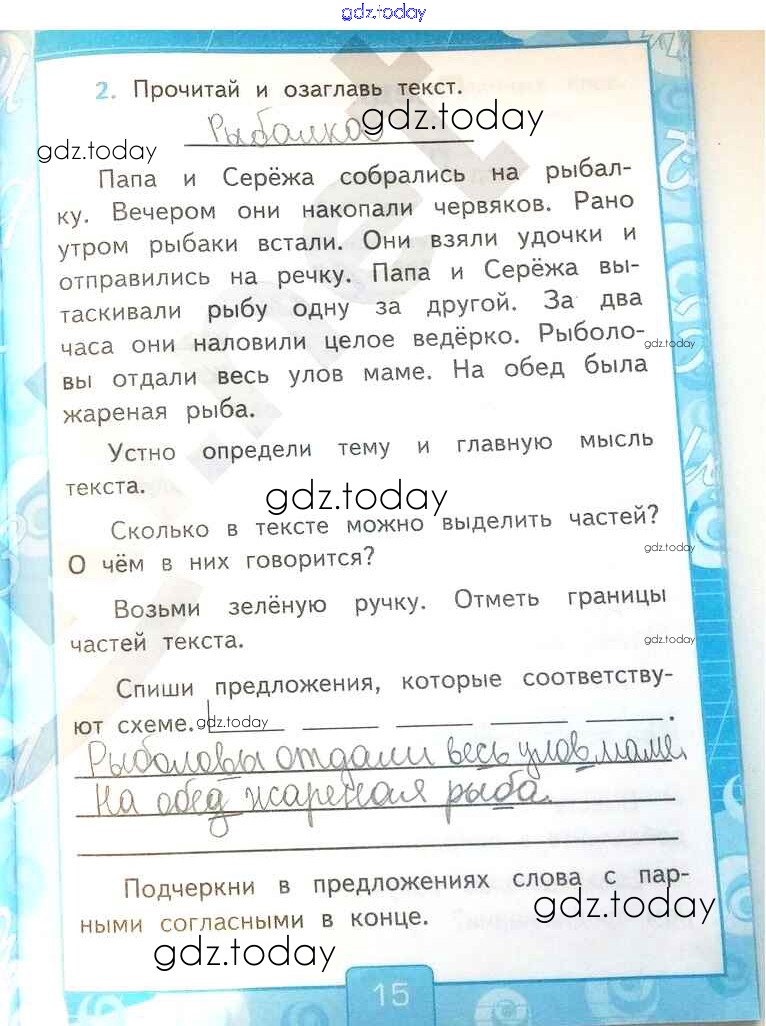 gdz.today
2. Прочитай и озаглавь текст.
Рыбалка
gdz.today
gdz.today
Папа и Серёжа собрались на рыбал-
ку. Вечером они накопали червяков. Рано
утром рыбаки встали. Они взяли удочки и
отправились на речку. Папа и Серёжа вы-
таскивали рыбу одну за другой. За два
часа они наловили целое ведёрко. Рыболо-
gdz.today
вы отдали весь улов маме. На обед была
жареная рыба.
Устно определи тему и главную мысль
текста.
gdz.today
Сколько в тексте можно выделить частей?
gdz.today
О чём в них говорится?
Возьми зелёную ручку. Отметь границы
частей текста.
gdz.today
Спиши предложения, которые соответству-
ют схеме.
gdz.today
Рыболовы отдали весь улов маме.
На обед жареная рыба.
Подчеркни в предложениях слова с пар-
ными согласными в конце.
gdz.today
gdz.today
15